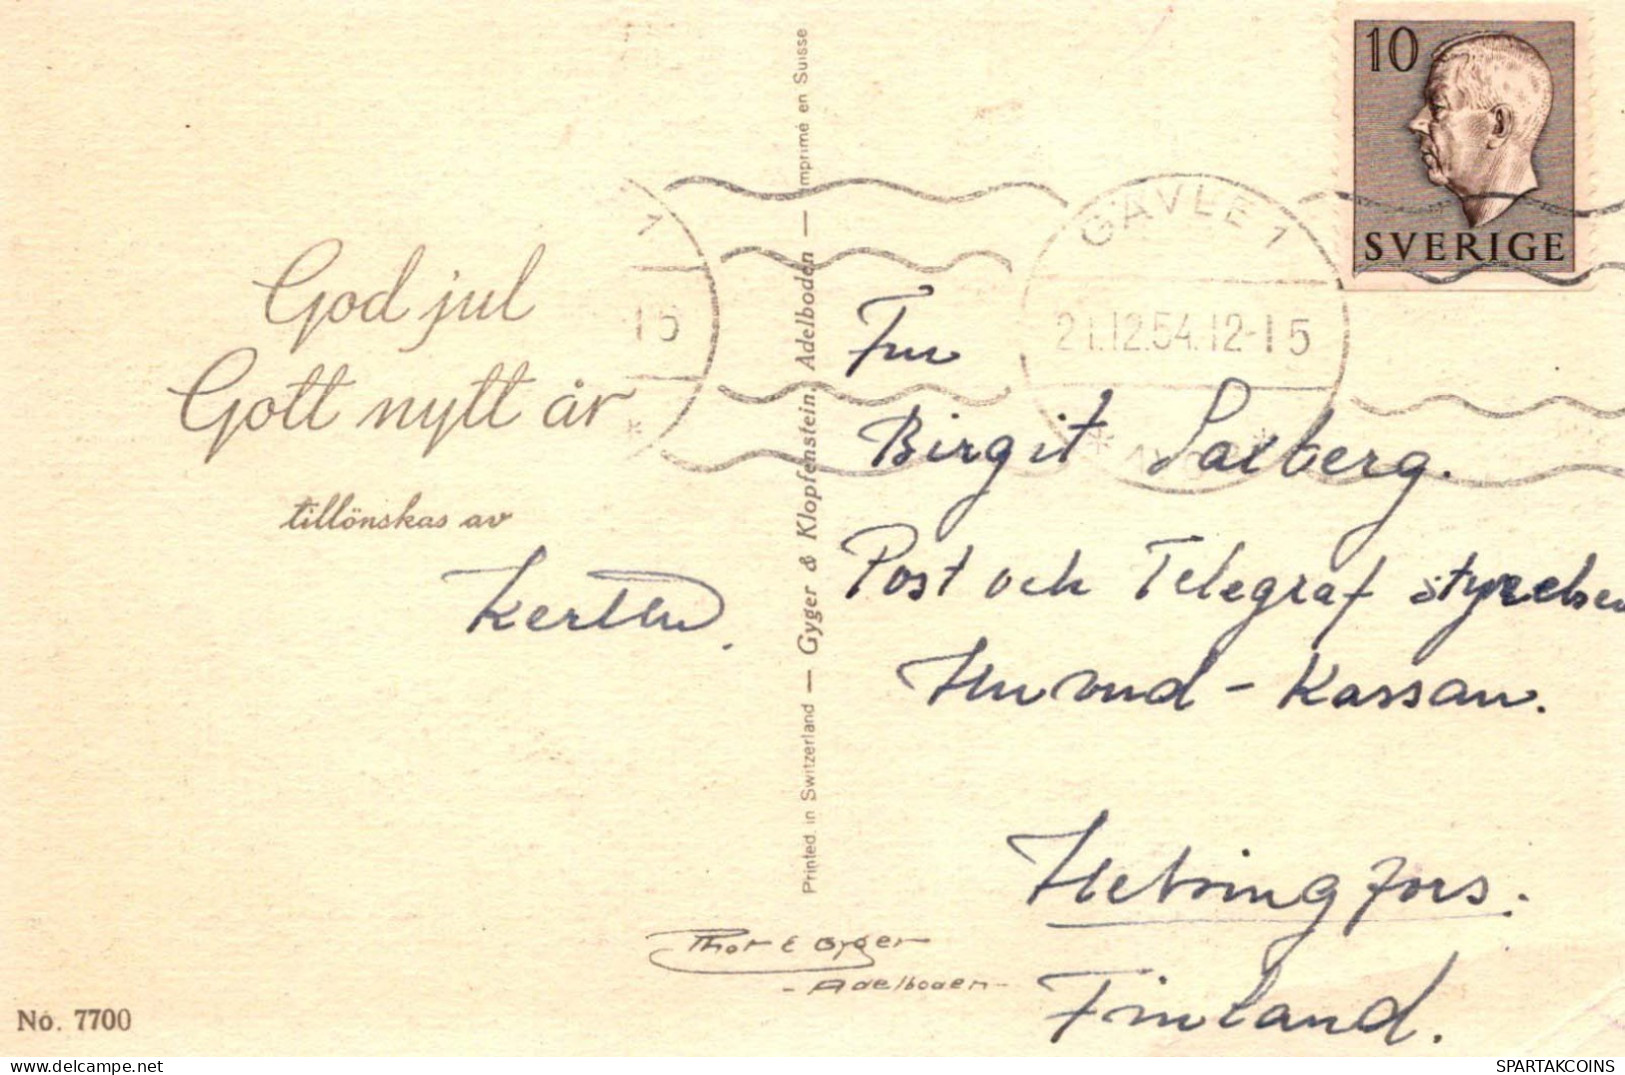 10
SVERIGE
GÄVLE 1
21.12.54.12-15
1
15
God jul
Gott nytt år
tillönskas av
Printed in Switzerland — Gyger & Klopfenstein, Adelboden — Imprimé en Suisse
Birgit
Post och Telegraf styrelsen
Huvud-Kassan.
Helsingfors.
Finland.
Phot E Gyger
- Adelboden -
No. 7700
SPARTAKCOINS